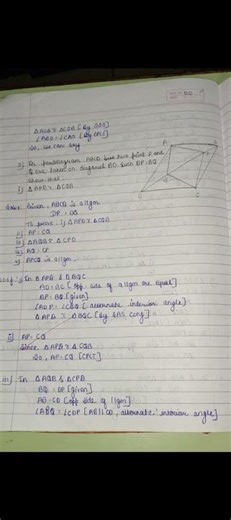 ΔAQB ≅ ΔCPD [By SAS]
So, we can say
In parallelogram ABCD, two point P and
Q are taken on diagonal BD such DP = BQ
show that
i) ΔAPD ≅ ΔCQB
A
Given, ABCD is a llgm
DP = BQ
To prove, i) ΔAPD ≅ ΔCQB
ii) AP = CQ
iii) ΔAQB ≅ ΔCPD
iv) AQ = CP
v) APCQ is a llgm
Proof, i) In ΔAPD & ΔBQC
AD = BC [opp. side of llgm are equal]
DP = BQ [given]
∠ADP = ∠CBQ [alternate interior angle]
ΔAPD ≅ ΔBQC [By SAS cong]
ii) AP = CQ
Since ΔAPD ≅ ΔCQB
So, AP = CQ [CPCT]
iii) In ΔAQB & ΔCPD
BQ = DP [given]
AB = CD [opp side of llgm]
∠ABQ = ∠CDP [AB||CD, alternate interior angle]